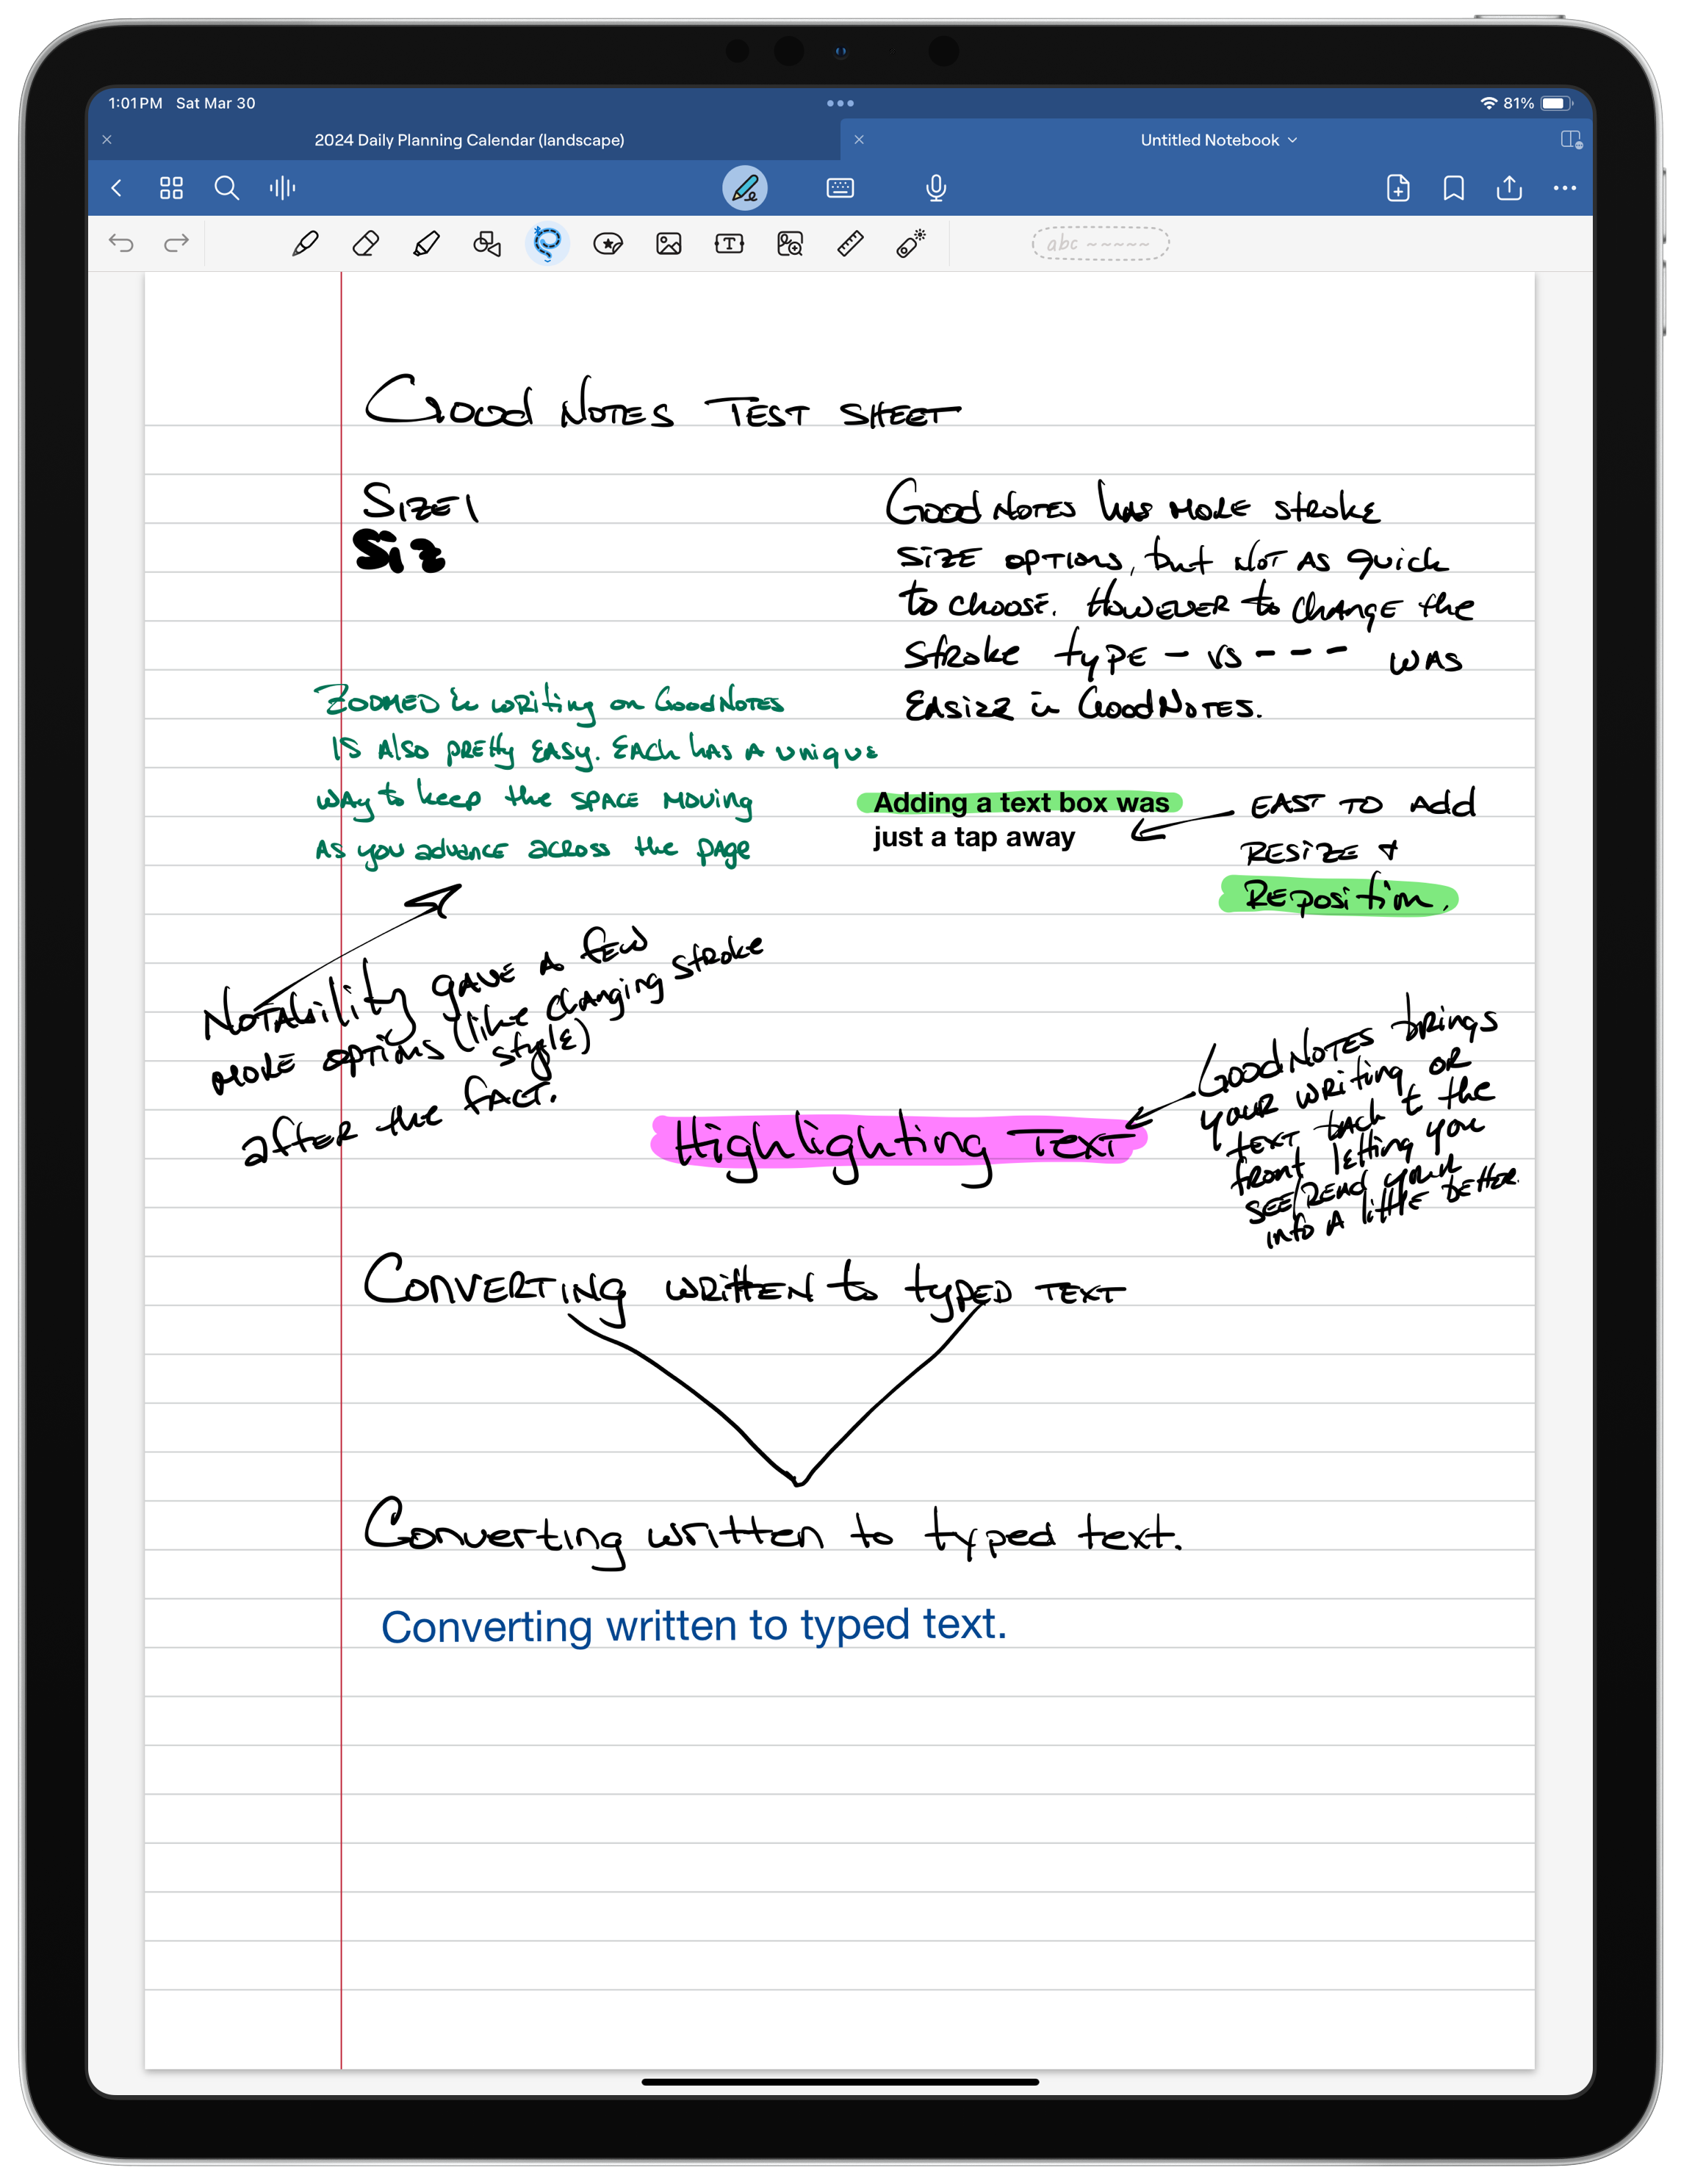 1:01 PM Sat Mar 30
81%
2024 Daily Planning Calendar (landscape)
Untitled Notebook
abc ~~~~~
GOOD NOTES TEST SHEET
SIZE 1
Siz
GOOD NOTES has MORE stroke
SIZE OPTIONS, but NOT AS quick
to choose. HOWEVER to change the
stroke type - vs - - - - WAS
EASIER in GOODNOTES.
ZOOMED in writing on GOODNOTES
IS Also pretty EASY. EACh has A unique
wAy to keep the SPACE MOVING
As you advance across the page
Adding a text box was
just a tap away
EAST TO Add
RESIZE &
REposition.
Notability gAVE A fEW
MORE options (like changing stroke
style)
after the fACT.
Highlighting TEXT
GOODNOTES brings
your writing OR
TEXT back t the
front letting you
SEE/READ your
info A little better.
CONVERTING WRITTEN to typed TEXT
Converting written to typed text.
Converting written to typed text.